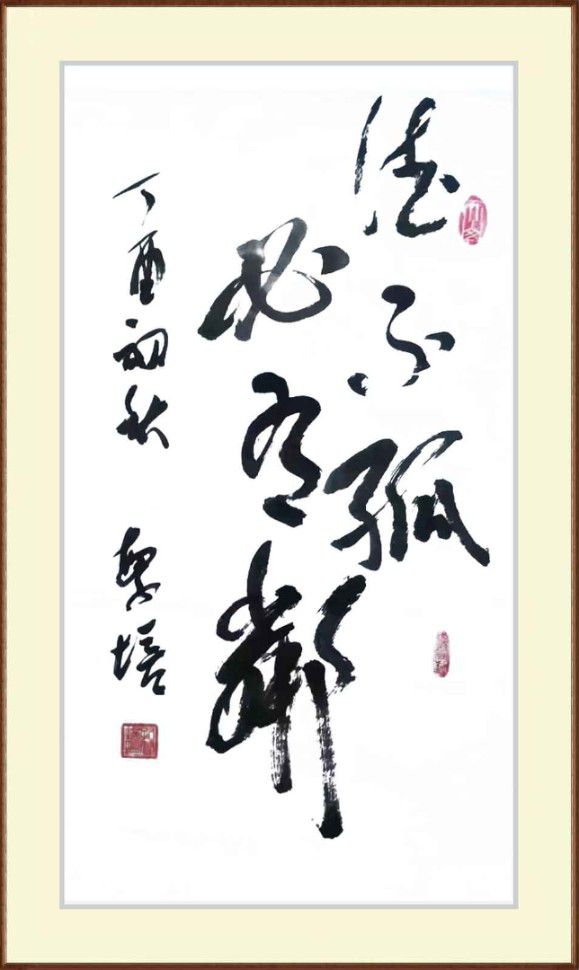 德不孤
必有鄰
丁酉初秋
培